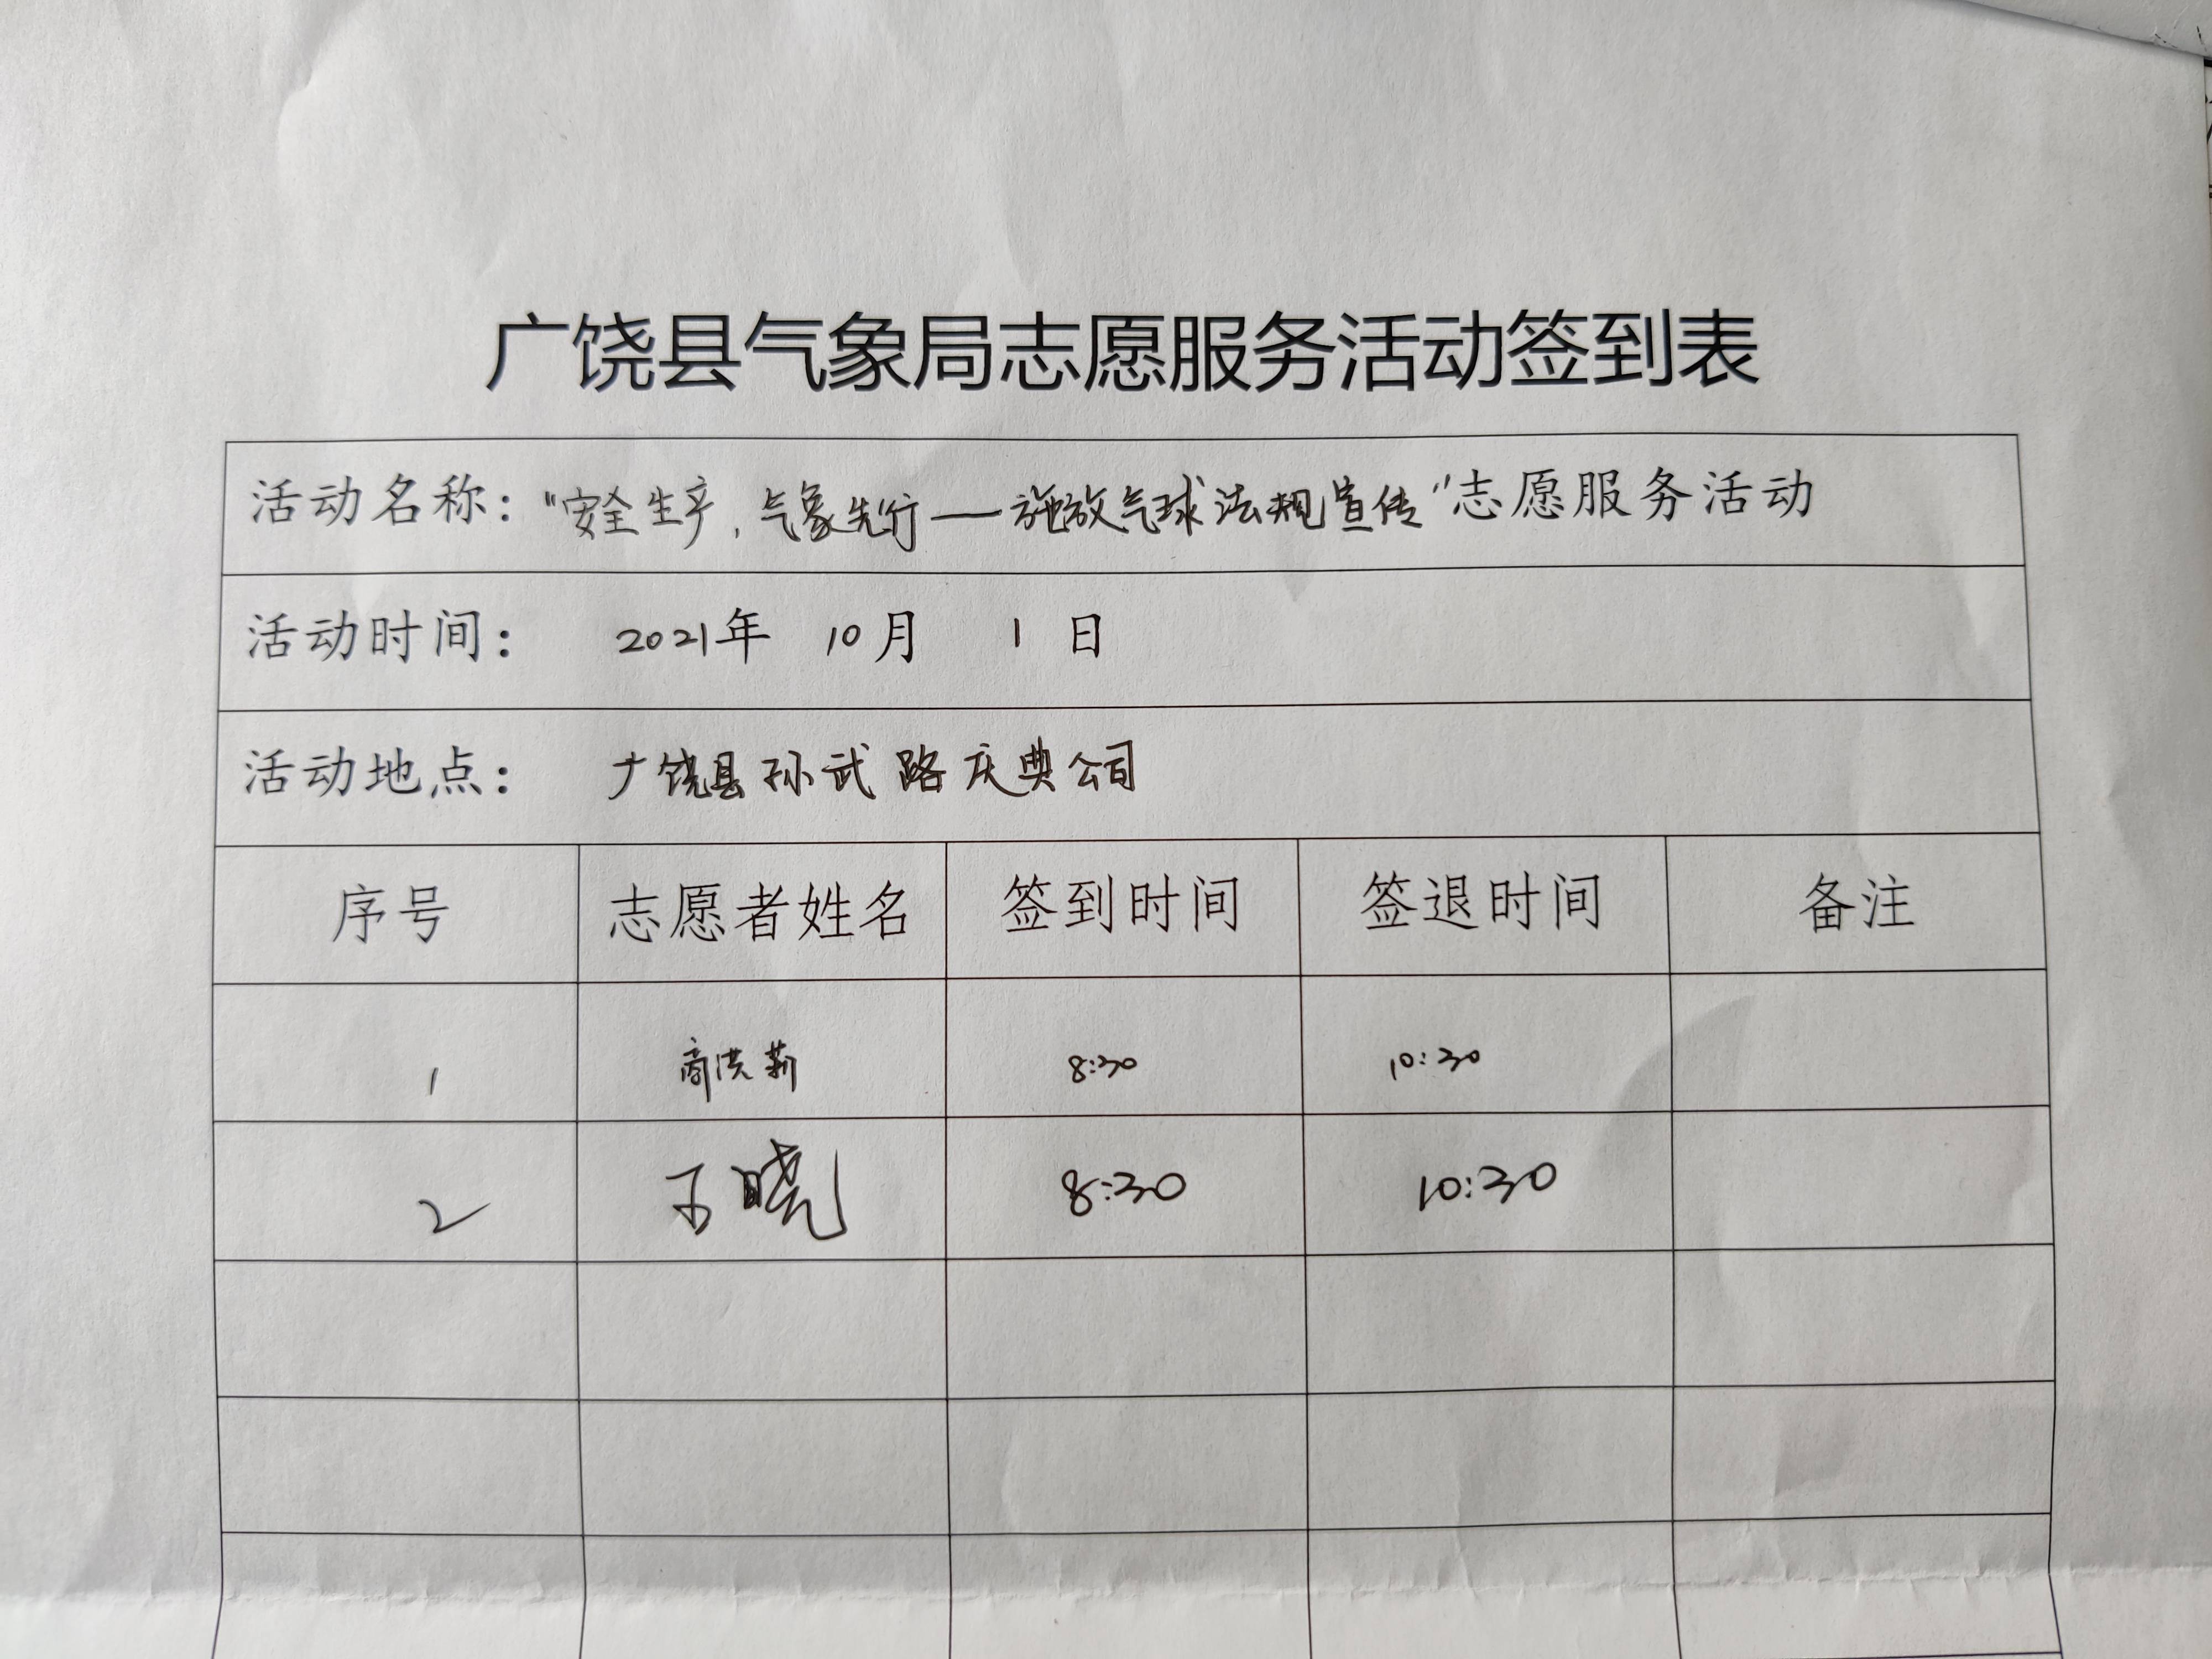 广饶县气象局志愿服务活动签到表
活动名称："安全生产，气象先行——施放气球法规宣传"志愿服务活动
活动时间： 2021年 10月 1日
活动地点： 广饶县孙武路庆典公司
序号 志愿者姓名 签到时间 签退时间 备注
1 商洪莉 8:30 10:30
2 晓 8:30 10:30